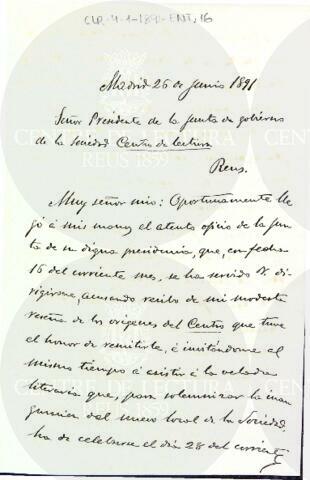 CLR-4-1-1891-ENT, 16
Madrid 26 de Junio 1891
Señor Presidente de la Junta de gobierno
de la Sociedad Centro de lectura
Reus.
Muy señor mio: Oportunamente lle
gó á mis manos el atento oficio de la Jun
ta de su digna presidencia, que, con fecha
16 del corriente mes, se ha servido V. di
rigirme, acusando recibo de mi modesta
reseña de los orígenes del Centro que tuve
el honor de remitirle, é invitándome al
mismo tiempo á asistir á la velada
literaria que, para solemnizar la inau
guracion del nuevo local de la Sociedad,
ha de celebrarse el dia 28 del corriente
CENTRE DE LECTURA
REUS 1859
CENTRE DE LECTURA
REUS 1859